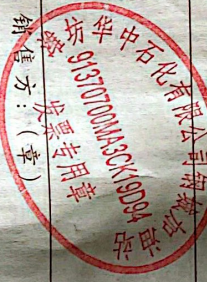 潍坊华中石化有限公司钢城加油站
91370700MA3CK19D94
发票专用章
销售方：（章）